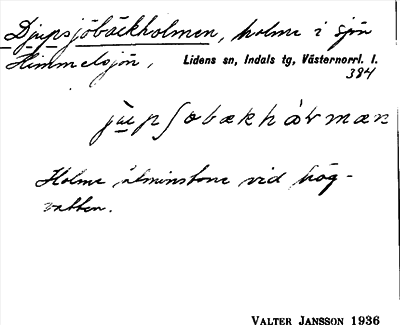 Djupsjöbäckholmen, holme i sjön
Himmelsjön, Lidens sn, Indals tg, Västernorrl. l.
384
Holme åtminstone vid hög-
vatten.
VALTER JANSSON 1936